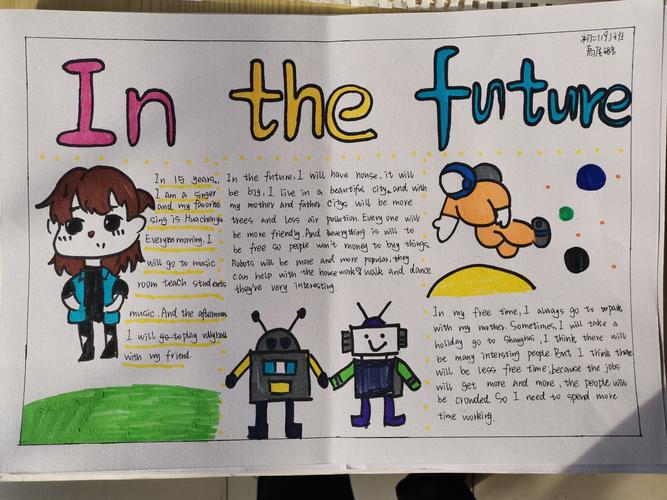 初二19班
In the future
In 15 years,
I am a singer
and my favorite
sing is Huachenyu.
Everymorning, I
will go to music
room teach students
music. And the afternoon
I will go to play vollyball
with my friend.
In the future, I will have house, it will
be big, I live in a beautiful city, and with
my mother and father. Citys will be more
trees and less air pollution. Every one will
be more friendly. And everything is will to
be free so people won't money to buy things.
Robots will be more and more popular, they
can help with the housework, walk and dance
they're very interesting.
In my free time, I always go to park
with my mother. Sometimes, I will take a
holiday go to Shanghai, I think there will
be many intersting people. But I think there
will be less free time, because the jobs
will get more and more, the people will
be crowded. So I need to spend more
time working.